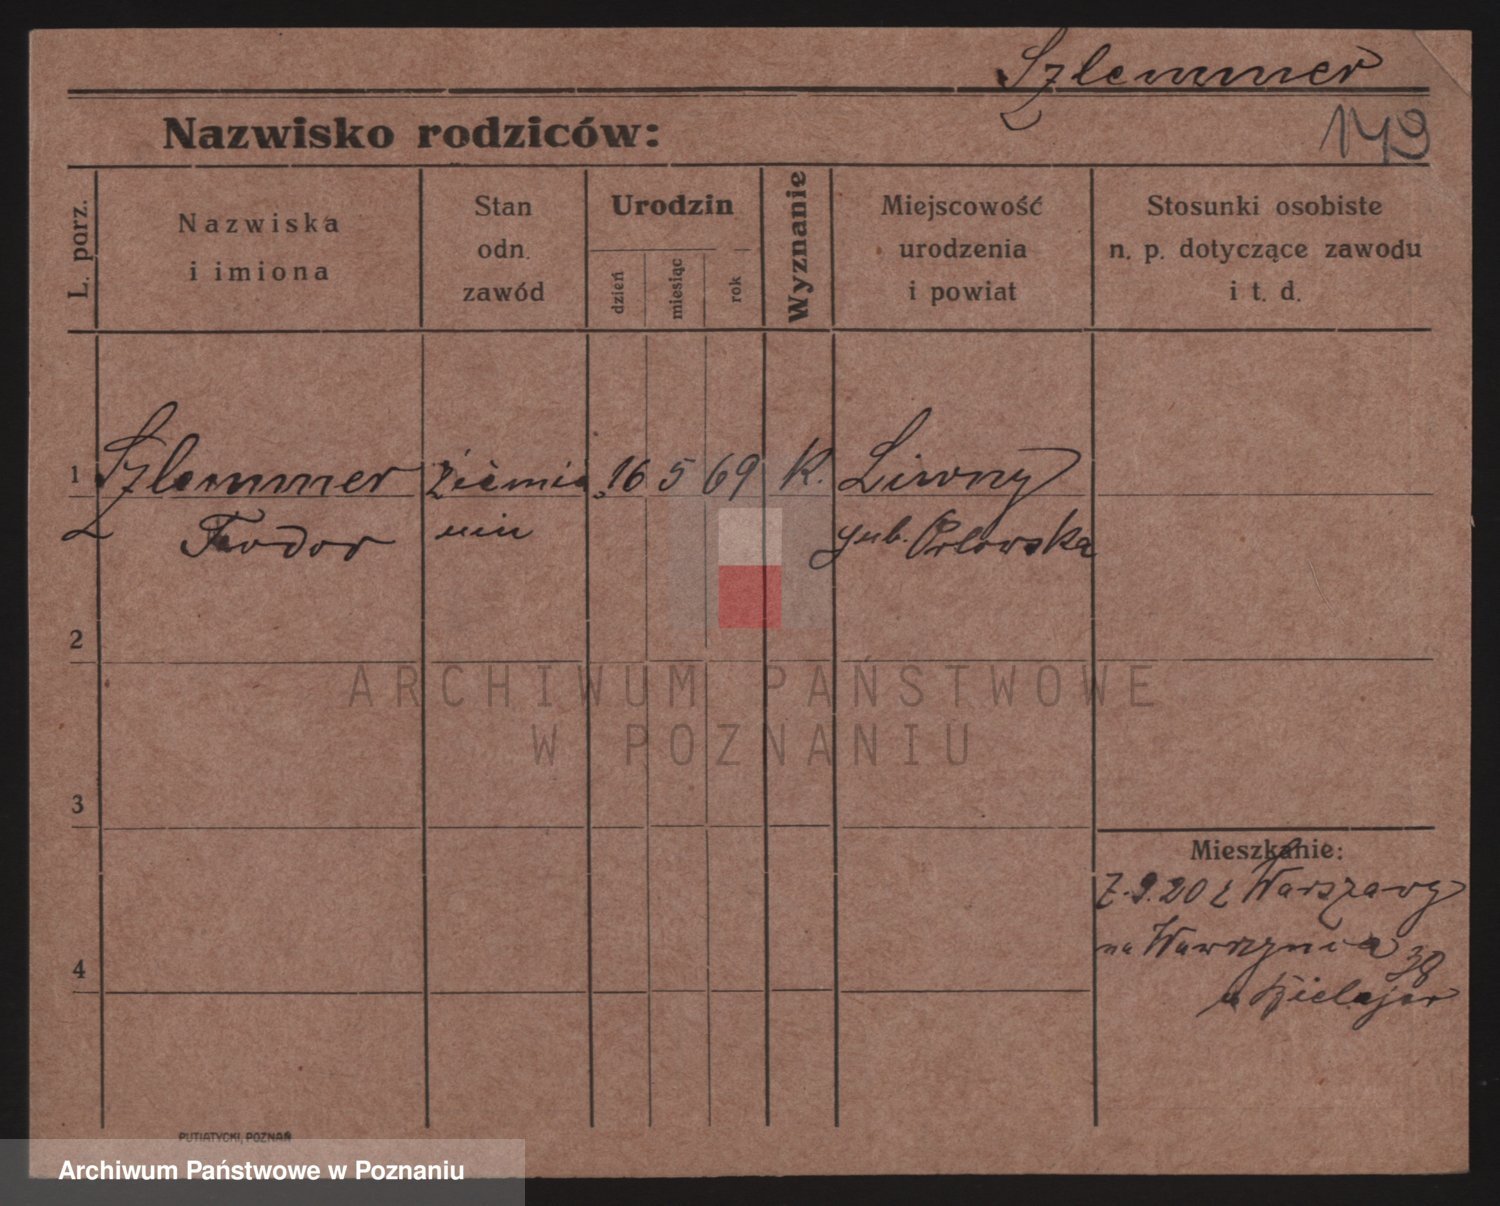 Szlemmer
149
Nazwisko rodziców:
L. porz.
Nazwiska
i imiona
Stan
odn.
zawód
Urodzin
dzień
miesiąc
rok
Wyznanie
Miejscowość
urodzenia
i powiat
Stosunki osobiste
n. p. dotyczące zawodu
i t. d.
1 Szlemmer ziemia 16 5 69 K. Liwny
Feodor nin gub. Orlowska
2
3
4
Mieszkanie:
7.9.20 z Warszawy
na Wawrzynca 38
u
PUTIATYCKI, POZNAŃ
ARCHIWUM PAŃSTWOWE
W POZNANIU
Archiwum Państwowe w Poznaniu